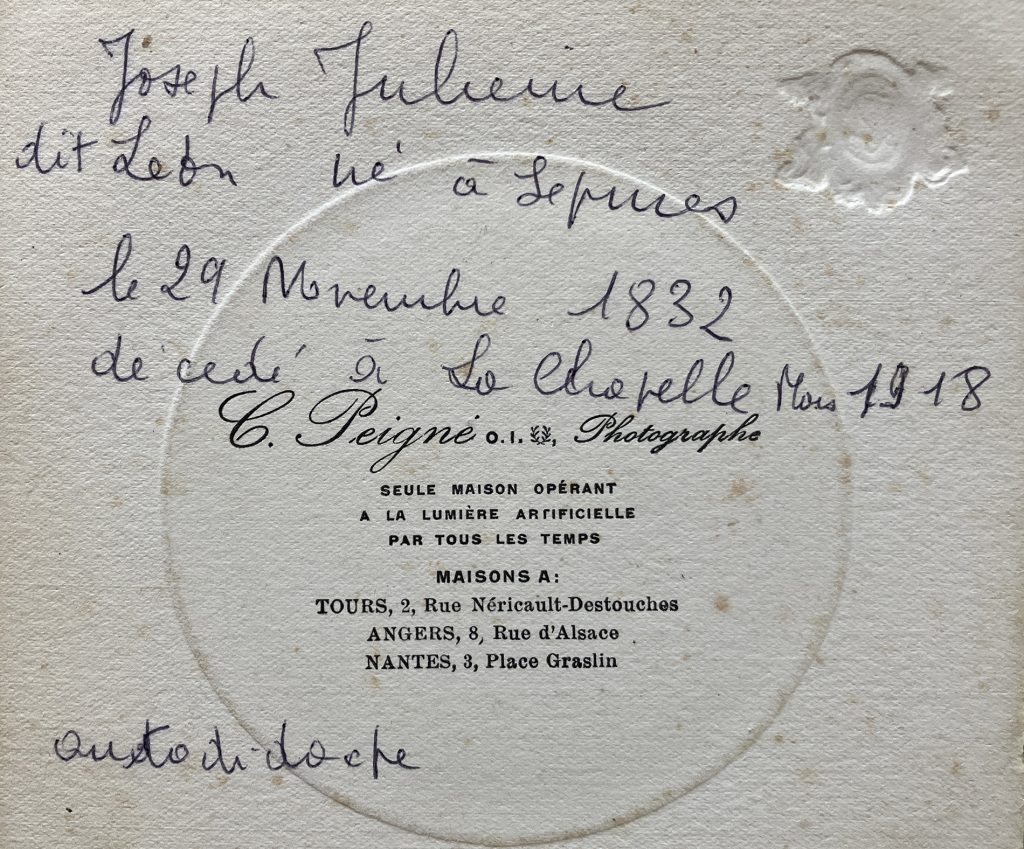 Joseph Julienne
dit Léon né à Sepmes
le 29 Novembre 1832
décedé à La Chapelle Mars 1918
C. Peigné O.I., Photographe
SEULE MAISON OPÉRANT
A LA LUMIÈRE ARTIFICIELLE
PAR TOUS LES TEMPS
MAISONS A:
TOURS, 2, Rue Néricault-Destouches
ANGERS, 8, Rue d'Alsace
NANTES, 3, Place Graslin
autodidacte